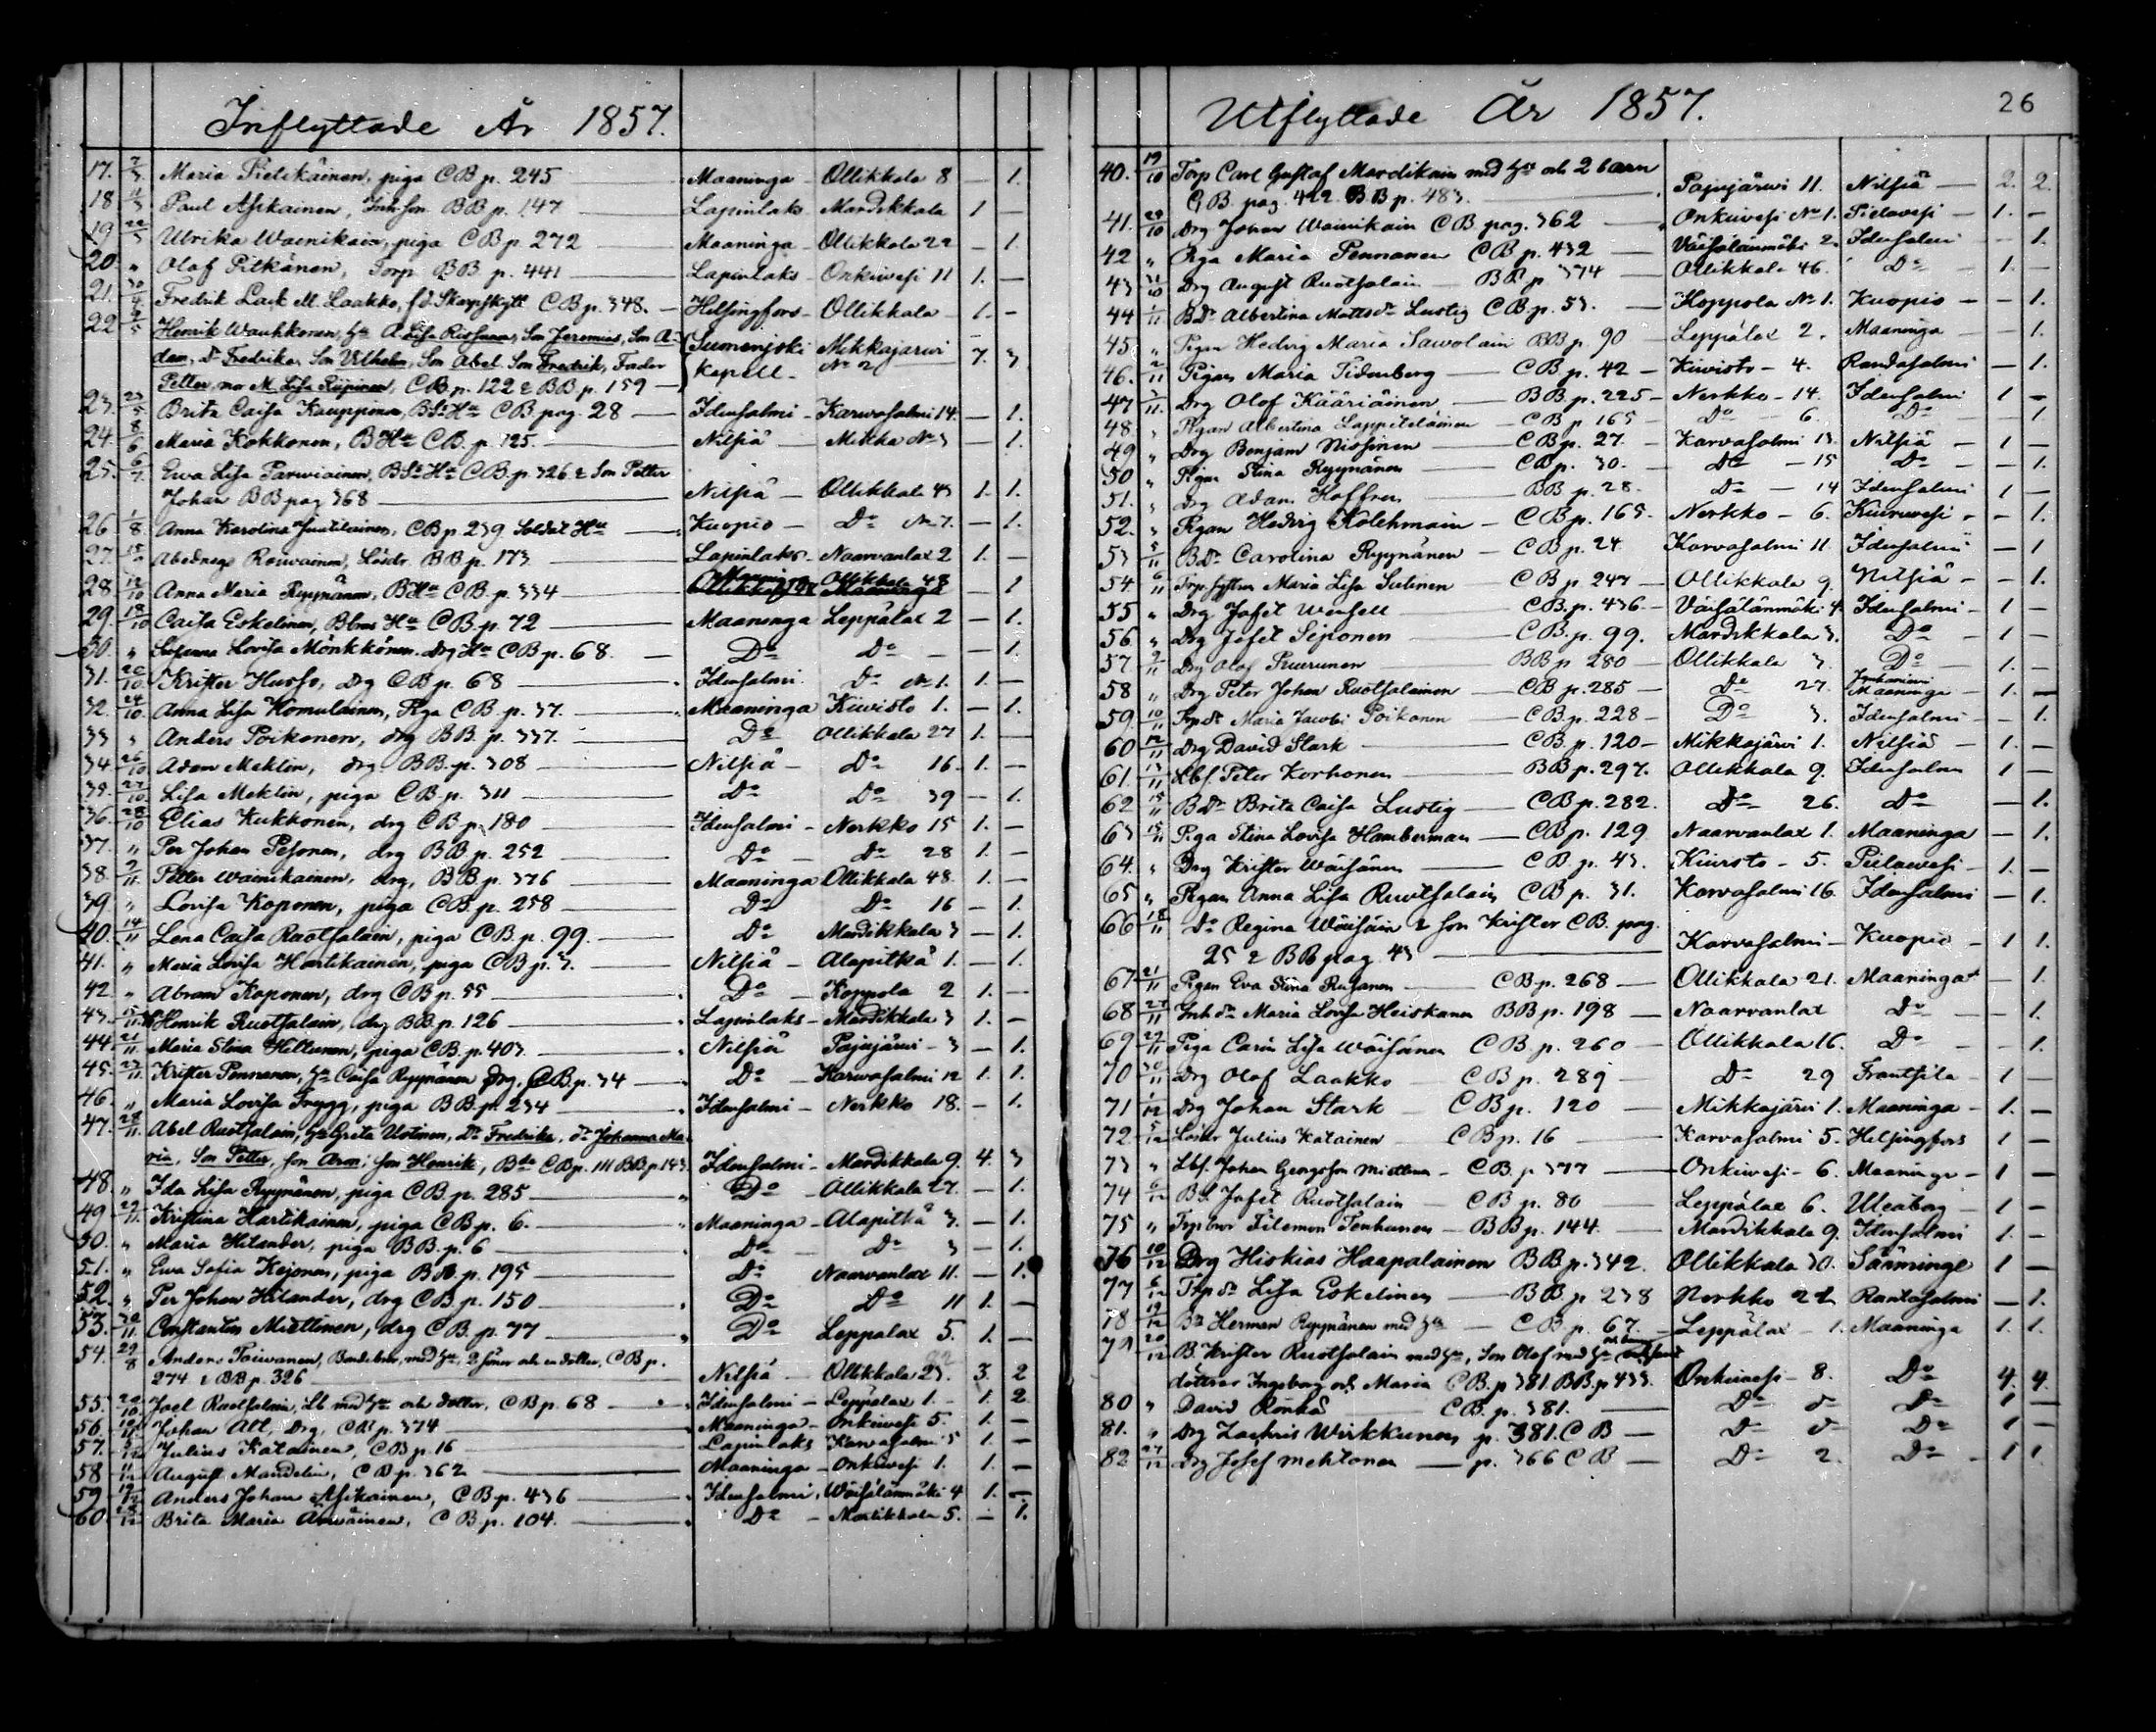 Inflyttade År 1857.
17. 7/3 Maria Pietikäinen, piga CB p. 245 — Maaninga — Ollikkala 8 — 1.
18 11/3 Paul Asikainen, Inh. son BB p. 147 — Lapinlaks — Mardikkala 1 —
19 22/3 Ulrika Wainikain, piga CB p. 272 — Maaninga — Ollikkala 22 — 1.
20. „ Olof Pitkänen, Torp. BB p. 441 — Lapinlaks — Onkiwesi 11 1. —
21. 30/4 Fredrik Lack M. Laakko, f.d. Skarpskytt CB p. 348. — Helsingfors — Ollikkala — 1. —
22 2/5 Henrik Wauhkonen, Hu A. Lisa Rissanen, Son Jeremias, Son A-
dam, Dr Fredrika, Son Wilhelm, Son Abel, Son Fredrik, Fader Sumenjoki Mikkajärwi 7. 3
Petter, mor M. Lisa Riipinen, CB p. 122 & BB p. 159 — Kapell — No 2
23. 23/5 Brita Caisa Kauppinen, BSHu CB pag. 28 — Idensalmi — Karwasalmi 14. — 1.
24. 8/6 Maria Kokkonen, BHu CB p. 125. — Nilsiä — Mikka No 3 — 1.
25. 6/7 Ewa Lisa Parwiainen, BSHu CB p. 326 & Son Petter
Johan BB pag 368 — Nilsiä — Ollikkala 43 1. 1.
26 1/8 Anna Karolina Juutilainen, CB p. 239 Soldat Hu — Kuopio — Do No 7. — 1.
27. Abednego Rouwainen, Lösdr. BB p. 173 — Lapinlaks — Naarvanlax 2 1. —
28 12/10 Anna Maria Ryynänen, BHu CB p. 334 — Maaning Ollikkala 48 — 1
29. 18/10 Caisa Eskelinen, Bbros Hu CB p. 72 — Maaninga Leppälax 2 — 1.
30. „ Susanna Lovisa Mönkkönen. drg Hu CB p. 68. — Do Do — — 1.
31. 20/10 Krister Husso, drg CB p. 68 — Idensalmi. Do No 1. 1. —
32. 24/10 Anna Lisa Komulainen, Piga CB p. 37. — Maaninga Kiwisto 1. — 1.
33 „ Anders Poikonen, drg BB. p. 337. — Do Ollikkala 27 1. —
34. 26/10 Adam Meklin, drg. BB. p. 308 — Nilsiä — Do 16. 1. —
35. 27/10 Lisa Meklin, piga CB p. 311 — Do Do 39 — 1.
36. 28/10 Elias Kukkonen, drg CB p. 180 — Idensalmi — Nerkko 15 1. —
37. „ Per Johan Pesonen, drg BB p. 252 — Do — Do 28 1. —
38. 2/11. Petter Wainikainen, drg, BB p. 376 — Maaninga Ollikkala 48. 1. —
39. „ Lovisa Koponen, piga CB p. 258 — Do Do 16 — 1.
40. 14/11 Lena Caisa Ruotsalain, piga CB p. 99. — Do Mardikkala 3 — 1.
41. „ Maria Lovisa Hartikainen, piga CB p. 3. — Nilsiä — Alapitkä 1. — 1.
42. „ Abram Koponen, drg CB p. 55 — Do — Koppola 2 1. —
43. 15/11 Henrik Ruotsalain, drg BB p. 126 — Lapinlaks — Mardikkala 3 1. —
44. 21/11. Maria Stina Hiltunen, piga CB p. 403 — Nilsiä — Pajujärwi — 3 — 1.
45. 23/11. Krister Pennanen, Hu Caisa Ryynänen drg, CB p. 34 — Do — Karwasalmi 12 1. 1.
46. „ Maria Lovisa Trygg, piga BB p. 234 — Idensalmi — Nerkko 18. — 1.
47. 28/11. Abel Ruotsalain, Hu Greta Ustinen, Dr Fredrika, Dr Johanna Ma-
ria, Son Petter, son Aron, son Henrik, Bde CB p. 111 BB p. 143 — Idensalmi — Mardikkala 9. 4. 3
48. „ Ida Lisa Ryynänen, piga CB p. 285 — Do — Ollikkala 27. — 1.
49 29/11. Kristina Hartikainen, piga CB p. 6. — Maaninga — Alapitkä 3. — 1.
50. „ Maria Hilander, piga BB p. 6 — Do — Do 3 — 1.
51. „ Ewa Sofia Kejonen, piga BB. p. 195 — Do Naarvanlax 11. — 1.
52. „ Per Johan Hilander, drg CB p. 150 — Do Do 11 1. —
53. 30/11. Constantin Miettinen, drg CB p. 77 — Do Leppälax 5. 1. —
54. 29/8 Anders Toiwanen, Bondebror, med Hu, 2 söner och en dotter, CB p.
274 & BB p. 326 — Nilsiä — Ollikkala 23. 3. 2
55. 20/10 Joel Ruotsalain, Lb med Hu och dotter, CB p. 68 — Idensalmi — Leppälax 1. — 1. 2
56. Johan Alt, Drg, CB p. 374 — Maaninga — Onkiwesi 5. 1. —
57. 5/12 Julius Katainen, CB p. 16 — Lapinlaks Karwasalmi 5 1. —
58 August Mandelin, CB p. 362 — Maaninga — Onkiwesi 1. 1. —
59. 19/12 Anders Johan Asikainen, CB p. 436 — Idensalmi, Wäisälänmäki 4 1. —
60. Brita Maria Arwainen, CB p. 104. — Do — Martikkala 5. — 1.
Utflyttade År 1857.
26
40. 19/10 Torp Carl Gustaf Mardikain med Hu och 2 barn
CB. pag. 422. BB p. 483. — Pajujärwi 11. Nilsiä — 2. 2.
41. 28/10 Drg Johan Wainikain CB pag. 362 — Onkiwesi No 1. Pielawesi — 1. —
42 „ Piga Maria Pennanen CB p. 432 — Väisälänmäki 2. Idensalmi — 1.
43 31/10 Drg August Ruotsalain — BB p 374 — Ollikkala 46. Do — 1. —
44 1/11 BDr Albertina Mattsdr Lustig CB p. 53. — Koppola No 1. Kuopio — — 1.
45 „ Pigan Hedvig Maria Sawolain BB p. 90 — Leppälax 2. Maaninga — 1.
46. 2/11 Pigan Maria Tidenberg — CB p. 42 — Kiwisto — 4. Randasalmi — 1.
47 3/11. Drg Olof Kääriäinen — BB p. 225 — Nerkko — 14. Idensalmi 1 —
48 „ Pigan Albertina Lappiteläinen — CB p 165 — Do 6. Do — 1
49 „ Drg Benjam Nissinen — CB p. 27. — Karvasalmi 13. Nilsiä — 1 —
50 „ Pigan Stina Ryynänen — CB p. 30. — Do — 15 Do — — 1.
51. „ Drg Adam Hoffren — BB p. 28. — Do — 14 Idensalmi 1 —
52. „ Pigan Hedvig Kolehmain — CB p. 165. Nerkko — 6. Kiuruwesi — — 1.
53 5/11 BDr Carolina Ryynänen — CB p. 24 Karvasalmi 11. Idensalmi — 1
54 6/11 Torp syster Maria Lisa Sutinen — CB p 247 — Ollikkala 9. Nilsiä — — 1.
55 „ Drg Jafet Wensell — CB p. 436. — Väisälänmäki 4. Idensalmi — 1 —
56 „ Drg Jafet Seponen — CB p. 99. Mardikkala 3. Do — 1 —
57 9/11 Drg Olof Puurunen — BB p 280 — Ollikkala 3. Do — 1. —
58 „ Drg Peter Johan Ruotsalainen — CB p. 285 — Do 27. Maaninga — 1. —
59. 10/11 Trp dr Maria Jacobi Poikonen — CB p. 228 — Do 3. Idensalmi — — 1.
60 12/11 Drg David Stark — CB p. 120 — Mikkajärwi 1. Nilsiä — 1. —
61. 13/11 Lbf. Peter Korhonen — BB p. 297. Ollikkala 9. Idensalmi 1 —
62 15/11 BDr Brita Caisa Lustig — CB p. 282. Do 26. Do — 1.
63 15/11 Piga Stina Lovisa Hamberman — CB p. 129 Naarvanlax 1. Maaninga — 1.
64. „ Drg Krister Wäisänen — CB p. 43. Kiwisto — 5. Pielawesi — 1. —
65 „ Pigan Anna Lisa Ruotsalain CB p. 31. Karvasalmi 16. Idensalmi — 1.
66 18/11 Do Regina Wäisäin & son Krister CB. pag.
25 & BB pag. 43 — Karvasalmi — Kuopio — 1 1.
67 21/11 Pigan Eva Stina Rusanen — CB p. 268 — Ollikkala 21. Maaninga — 1.
68 27/11 Inh dr Maria Lovisa Heiskanen BB p. 198 — Naarvanlax Do — — 1.
69 29/11 Piga Carin Lisa Wäisänen CB p. 260 — Ollikkala 16. Do — — 1.
70 30/11 Drg Olof Laakko CB p. 289 — Do 29 Frantsila — 1 —
71 1/12 Drg Johan Stark — CB p. 120 — Mikkajärwi 1. Maaninga — 1. —
72 5/12 Lösdr Julius Katainen — CB p. 16 — Karvasalmi 5. Helsingfors 1 —
73 „ Lbf. Johan Georgsson Miettinen — CB. p 377 — Onkiwesi — 6. Maaninga — 1 —
74 6/12 Bd Jafet Ruotsalain — CB p. 80 — Leppälax 6. Uleåborg — 1 —
75 „ Trp bror Filemon Tenhunen — BB p. 144. — Mardikkala 9. Idensalmi 1. —
76 10/12 Drg Hiskias Haapalainen BB p. 342. Ollikkala 30. Säminge 1 —
77 6/12 Trp dr Lisa Eskelinen — BB p 238 Nerkko 22 Rantasalmi — 1.
78 19/12 Bd Herman Ryynänen med Hu — CB p. 67. — Leppälax — 1. Maaninga 1. 1.
79 20/12 B. Krister Ruotsalain med Hu, Son Olof med Hu
döttrar Ingeborg och Maria CB. p 381. BB. p 433. Onkiwesi — 8. Do 4. 4.
80 „ David Rönkä — CB. p. 381. — Do Do 1 —
81. „ Drg Zachris Wirkkunen p. 381. CB — Do Do 1 —
82 27/12 Drg Josef Mehtonen — p. 366 CB — Do 2. Do — 1